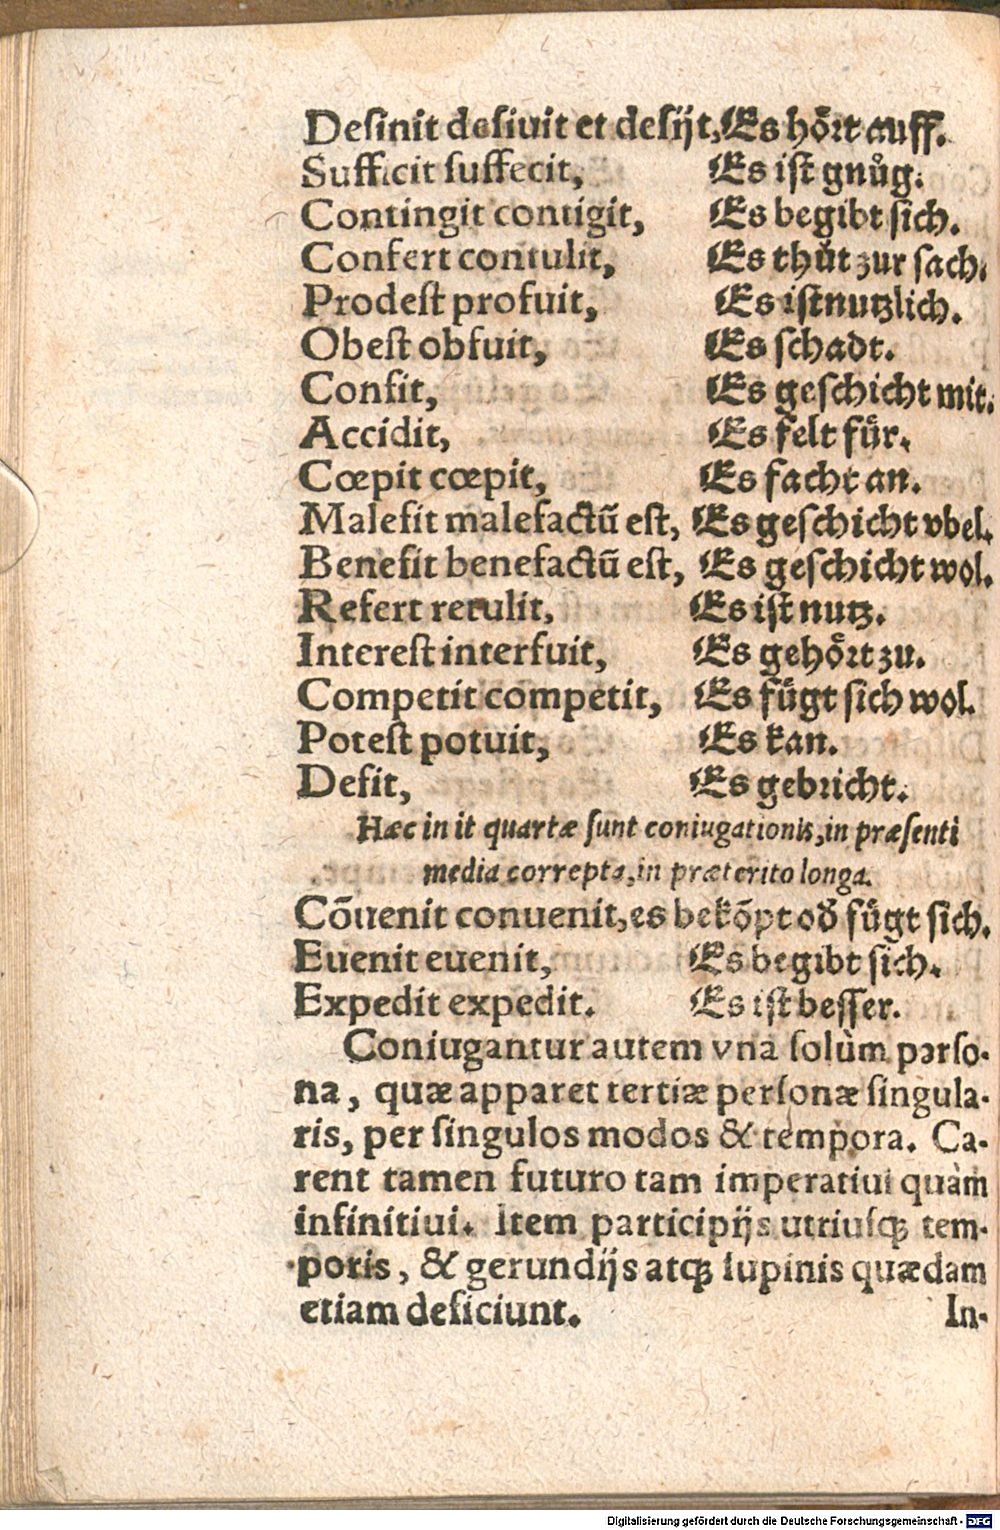 Deſinit deſiuit et deſijt, Es hoͤꝛt auff.
Sufficit ſuffecit, Es iſt gnuͦg.
Contingit contigit, Es begibt ſich.
Confert contulit, Es thuͦt zur ſach.
Prodeſt profuit, Es iſt nutzlich.
Obeſt obfuit, Es ſchadt.
Confit, Es geſchicht mit.
Accidit, Es felt fuͤr.
Cœpit cœpit, Es facht an.
Malefit malefactū eſt, Es geſchicht vbel.
Benefit benefactū eſt, Es geſchicht wol.
Refert retulit, Es iſt nutz.
Intereſt interfuit, Es gehoͤꝛt zu.
Competit competit, Es fuͤgt ſich wol.
Poteſt potuit, Es kan.
Defit, Es gebꝛicht.
Hæc in it quartæ ſunt coniugationis, in præſenti
media correpta, in præterito longa.
Cōuenit conuenit, es bekōpt od̄ fuͤgt ſich.
Euenit euenit, Es begibt ſich.
Expedit expedit. Es iſt beſſer.
Coniugantur autem vna ſolùm perſo-
na, quæ apparet tertiæ perſonæ ſingula-
ris, per ſingulos modos & tempora. Ca-
rent tamen futuro tam imperatiui quàm
infinitiui. Item participijs utriuſqꝫ tem-
poris, & gerundijs atqꝫ ſupinis quædam
etiam deficiunt. In-
Digitalisierung gefördert durch die Deutsche Forschungsgemeinschaft - DFG